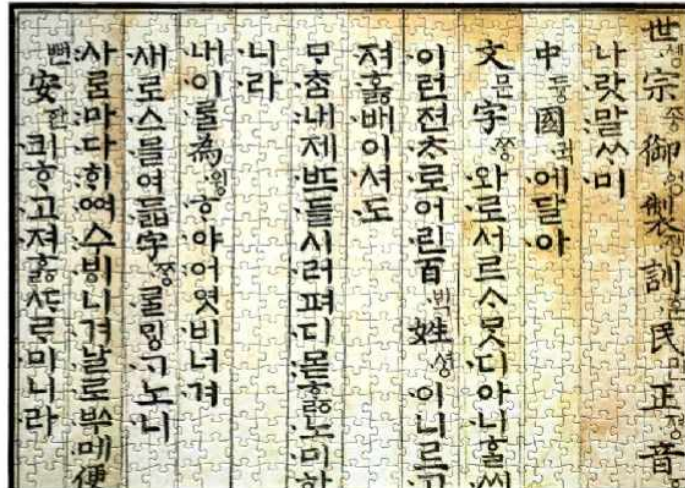 世셍宗종御엉製졩訓훈民민正졍音
나랏말ᄊᆞ미
中듕國귁에달아
文문字ᄍᆞᆼ와로서르ᄉᆞᄆᆞᆺ디아니ᄒᆞᆯᄊᆡ
이런젼ᄎᆞ로어린百ᄇᆡᆨ姓셩이니르고
져호ᇙ배이셔도
ᄆᆞᄎᆞᆷ내제ᄠᅳ들시러펴디몯ᄒᆞᇙ노미하
니라
내이ᄅᆞᆯ為윙ᄒᆞ야어엿비너겨
새로스믈여듧字ᄍᆞᆼᄅᆞᆯᄆᆡᇰᄀᆞ노니
사ᄅᆞᆷ마다ᄒᆡᅇᅧ수ᄫᅵ니겨날로ᄡᅮ메便
뼌安ᅙᅡᆫ킈ᄒᆞ고져ᄒᆞᇙᄯᆞᄅᆞ미니라